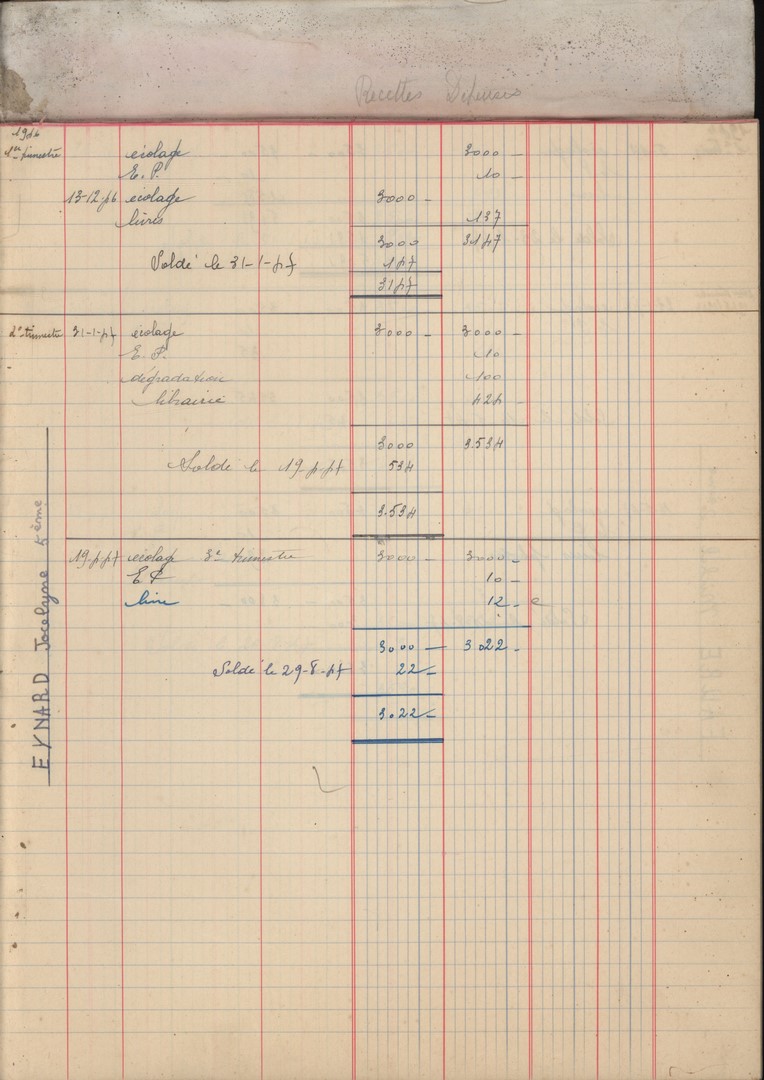 Recettes Dépenses
1946
1er trimestre écolage 3000 -
E. P. 10 -
13-12-46 écolage 3000 -
livres 137
3000 3147
Soldé le 31-1-47 147
3147
2e trimestre 31-1-47 écolage 3000 - 3000 -
E. P. 10
dégradation 100
librairie 424 -
3000 3.534
Soldé le 19 4 47 534
3.534
19 4 47 écolage 3e trimestre 3000 - 3000 -
E P 10 -
livre 12 -
3000 - 3.022 -
Soldé le 29-8-47 22 -
3.022 -
EYNARD Jocelyne 5ème